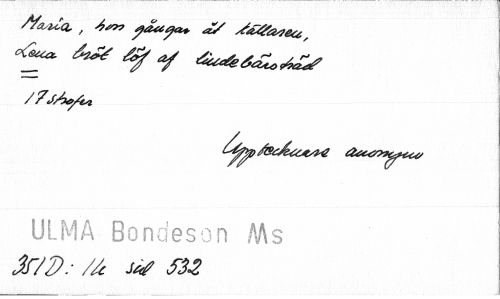 Maria, hon gångar åt källaren,
Lena bröt löf af lindebärsträd
17 strofer
Upptecknare anonym
ULMA Bondeson Ms
351D: 1k sid 532